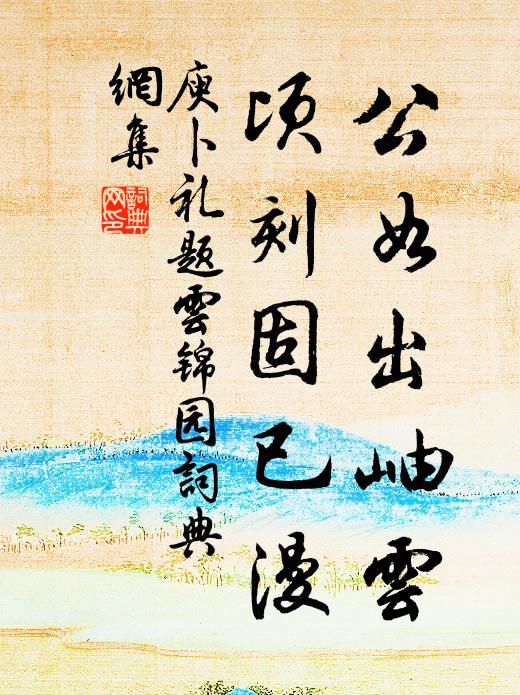 公如出岫雲
頃刻固已漫
庾卜礼题雲锦园詞典
網集
詞典
网印